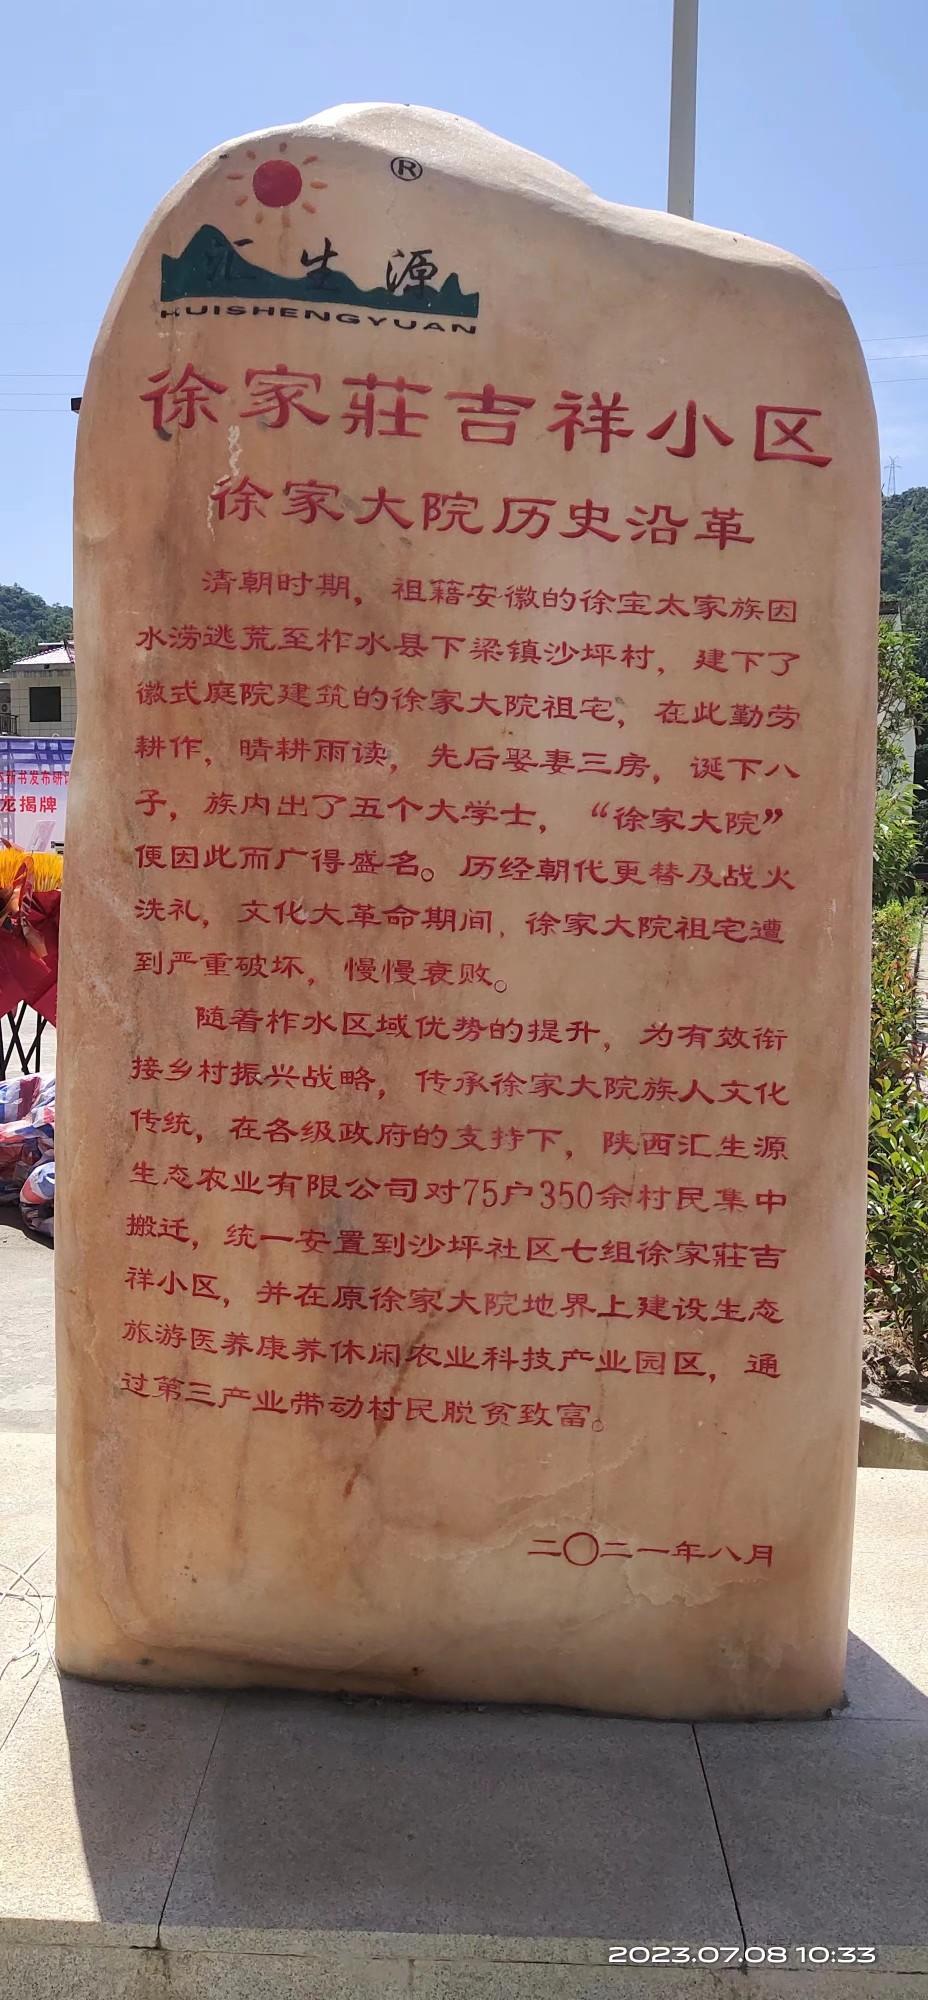 ®
汇生源
HUISHENGYUAN
徐家莊吉祥小区
徐家大院历史沿革
清朝时期，祖籍安徽的徐宝太家族因
水涝逃荒至柞水县下梁镇沙坪村，建下了
徽式庭院建筑的徐家大院祖宅，在此勤劳
耕作，晴耕雨读，先后娶妻三房，诞下八
子，族内出了五个大学士，“徐家大院”
便因此而广得盛名。历经朝代更替及战火
洗礼，文化大革命期间，徐家大院祖宅遭
到严重破坏，慢慢衰败。
随着柞水区域优势的提升，为有效衔
接乡村振兴战略，传承徐家大院族人文化
传统，在各级政府的支持下，陕西汇生源
生态农业有限公司对75户350余村民集中
搬迁，统一安置到沙坪社区七组徐家莊吉
祥小区，并在原徐家大院地界上建设生态
旅游医养康养休闲农业科技产业园区，通
过第三产业带动村民脱贫致富。
二〇二一年八月
新书发布研
龙揭牌
2023.07.08 10:33